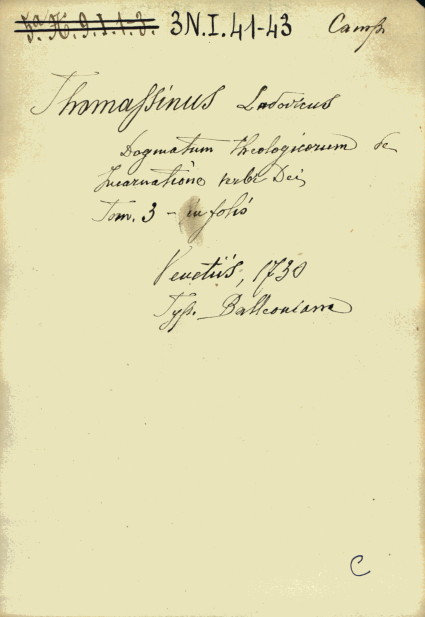 5ª.H.9.I.1.3. 3N.I.41-43 Camp.
Thomassinus Ludovicus
Dogmatum theologicorum de
Incarnatione verbi Dei
Tom. 3 - in folio
Venetiis, 1730
Typ. Balleoniana
C